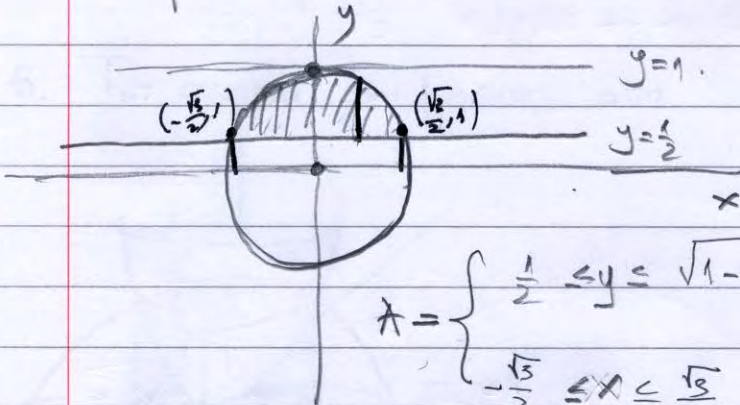 y
y=1.
(-√3/2, 1) (√3/2, 1)
y=1/2
x
A = { 1/2 ≤ y ≤ √1-
-√3/2 ≤ x ≤ √3/2